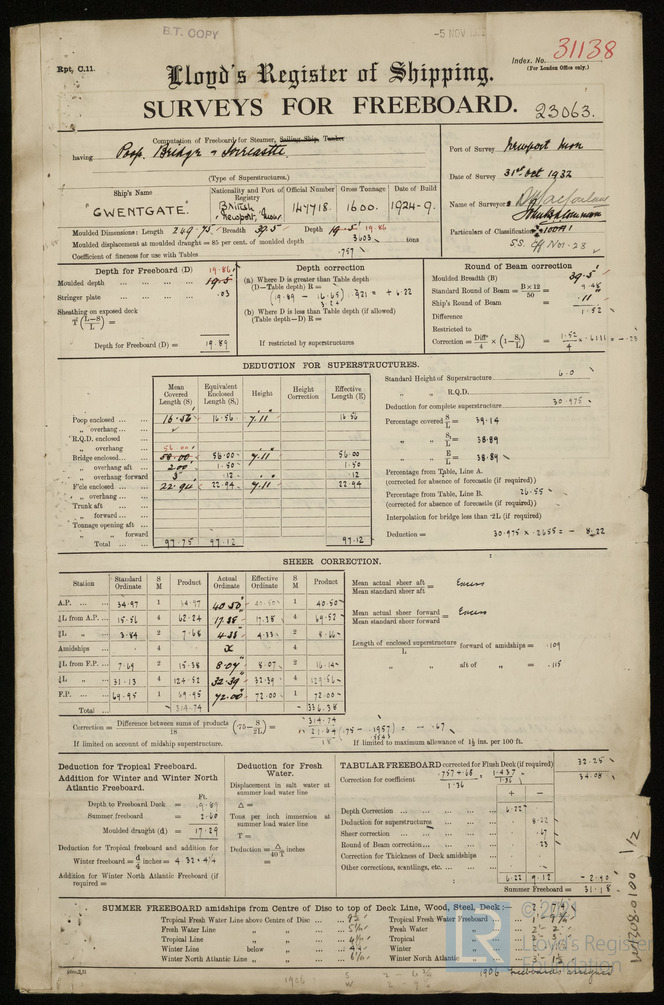 B.T. COPY
-5 NOV
Rpt. C.11.
Index. No. 31138
(For London Office only.)
Lloyd's Register of Shipping.
SURVEYS FOR FREEBOARD.
23063.
Computation of Freeboard for Steamer, Sailing Ship, Tanker
having Poop, Bridge & Forecastle.
(Type of Superstructures.)
Port of Survey Newport Mon
Date of Survey 31st Oct 1932
Name of Surveyors
Particulars of Classification 100A1
S.S. Nov. 28
Ship's Name
Nationality and Port of Registry
Official Number
Gross Tonnage
Date of Build
"GWENTGATE."
British
Newport, Mon.
147718.
1600.
1924-9.
Moulded Dimensions: Length 249.75 Breadth 39.5 Depth 19.5 19.86
Moulded displacement at moulded draught = 85 per cent. of moulded depth 3603 tons
Coefficient of fineness for use with Tables .757
Depth for Freeboard (D)
19.86
Moulded depth 19.5
Stringer plate .03
Sheathing on exposed deck
T (L-S/L) =
Depth for Freeboard (D) = 19.89
Depth correction
(a) Where D is greater than Table depth
(D—Table depth) R =
(19.89 - 16.65) 1.921 = + 6.22
3.24
(b) Where D is less than Table depth (if allowed)
(Table depth—D) R =
If restricted by superstructures
Round of Beam correction
Moulded Breadth (B) 39.5
Standard Round of Beam = B×12/50 = 9.48
Ship's Round of Beam = 11
Difference 1.52
Restricted to
Correction = Diff/4 × (1-S/L) = 1.52/4 × .6111 = -.23
DEDUCTION FOR SUPERSTRUCTURES.
Mean Covered Length (S)
Equivalent Enclosed Length (S₁)
Height
Height Correction
Effective Length (E)
Poop enclosed 16.56 16.56 7.11 16.56
„ overhang
R.Q.D. enclosed
„ overhang 56.00
Bridge enclosed 58.00 56.00 7.11 56.00
„ overhang aft 2.00 1.50 1.50
„ overhang forward 3" .12 .12
F'cle enclosed 22.94 22.94 7.11 22.94
„ overhang
Trunk aft
„ forward
Tonnage opening aft
„ „ forward
Total 97.75 97.12 97.12
Standard Height of Superstructure 6.0
„ „ R.Q.D.
Deduction for complete superstructure 30.975
Percentage covered S/L = 39.14
„ „ S₁/L = 38.89
„ „ E/L = 38.89
Percentage from Table, Line A.
(corrected for absence of forecastle (if required))
Percentage from Table, Line B. 26.55
(corrected for absence of forecastle (if required))
Interpolation for bridge less than ·2L (if required)
Deduction = 30.975 × .2655 = - 8.22
SHEER CORRECTION.
Station
Standard Ordinate
S M
Product
Actual Ordinate
Effective Ordinate
S M
Product
A.P. 34.97 1 34.97 40.50" 40.50 1 40.50
⅙L from A.P. 15.56 4 62.24 17.38 17.38 4 69.52
⅓L „ 3.84 2 7.68 4.33 4.33 2 8.66
Amidships 4 x 4
⅓L from F.P. 7.69 2 15.38 8.07 8.07 2 16.14
⅙L „ 31.13 4 124.52 32.39 32.39 4 129.56
F.P. 69.95 1 69.95 72.00 72.00 1 72.00
Total 314.74 336.38
Mean actual sheer aft / Mean standard sheer aft = Excess
Mean actual sheer forward / Mean standard sheer forward = Excess
Length of enclosed superstructure / L forward of amidships = .109
„ „ aft of „ = .115
Correction = Difference between sums of products / 18 (·75 - S/2L) =
314.74
21.64 / 18 (.75 - .1957) = - .67
If limited on account of midship superstructure.
If limited to maximum allowance of 1½ ins. per 100 ft.
Deduction for Tropical Freeboard.
Addition for Winter and Winter North Atlantic Freeboard.
Ft.
Depth to Freeboard Deck = 19.89
Summer freeboard = 2.60
Moulded draught (d) = 17.29
Deduction for Tropical freeboard and addition for
Winter freeboard = d/4 inches = 4.32 = 4¼
Addition for Winter North Atlantic Freeboard (if required) =
Deduction for Fresh Water.
Displacement in salt water at summer load water line
Δ =
Tons per inch immersion at summer load water line
T =
Deduction = Δ/40T inches
=
TABULAR FREEBOARD corrected for Flush Deck (if required) 32.25
Correction for coefficient .757+.68/1.36 = 1.437/1.36 34.08
+ −
Depth Correction 6.22
Deduction for superstructures 8.22
Sheer correction .67
Round of Beam correction .23
Correction for Thickness of Deck amidships
Other corrections, scantlings, etc.
6.22 9.12 - 2.90
Summer Freeboard = 31.18
SUMMER FREEBOARD amidships from Centre of Disc to top of Deck Line, Wood, Steel, Deck:—
Tropical Fresh Water Line above Centre of Disc
Fresh Water Line „ „
Tropical Line „ „
Winter Line below „ „
Winter North Atlantic Line „ „
Tropical Fresh Water Freeboard
Fresh Water „
Tropical „
Winter „
Winter North Atlantic „
1906
1906 freeboards assigned
W1308-0100 1/2
LR
Lloyd's Register
Foundation